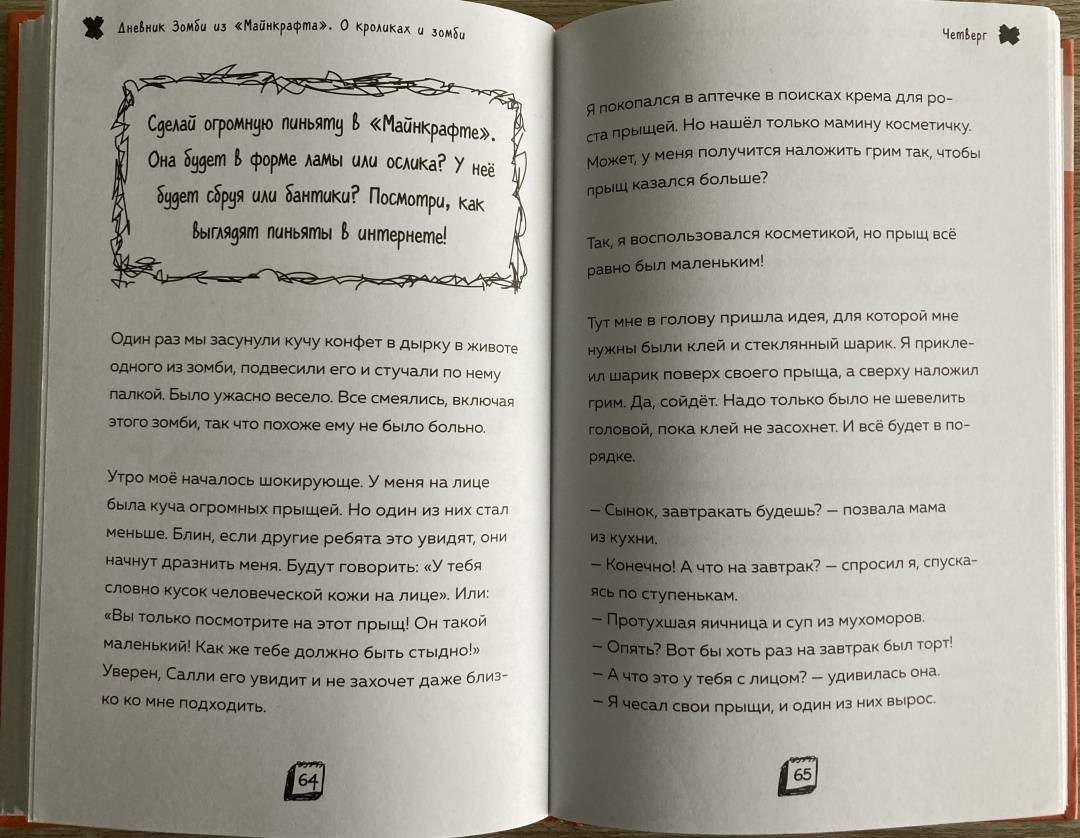 Дневник Зомби из «Майнкрафта». О кроликах и зомби
Сделай огромную пиньяту в «Майнкрафте».
Она будет в форме ламы или ослика? У неё
будет сбруя или бантики? Посмотри, как
выглядят пиньяты в интернете!
Один раз мы засунули кучу конфет в дырку в животе
одного из зомби, подвесили его и стучали по нему
палкой. Было ужасно весело. Все смеялись, включая
этого зомби, так что похоже ему не было больно.
Утро моё началось шокирующе. У меня на лице
была куча огромных прыщей. Но один из них стал
меньше. Блин, если другие ребята это увидят, они
начнут дразнить меня. Будут говорить: «У тебя
словно кусок человеческой кожи на лице». Или:
«Вы только посмотрите на этот прыщ! Он такой
маленький! Как же тебе должно быть стыдно!»
Уверен, Салли его увидит и не захочет даже близ-
ко ко мне подходить.
64
Четверг
Я покопался в аптечке в поисках крема для ро-
ста прыщей. Но нашёл только мамину косметичку.
Может, у меня получится наложить грим так, чтобы
прыщ казался больше?
Так, я воспользовался косметикой, но прыщ всё
равно был маленьким!
Тут мне в голову пришла идея, для которой мне
нужны были клей и стеклянный шарик. Я прикле-
ил шарик поверх своего прыща, а сверху наложил
грим. Да, сойдёт. Надо только было не шевелить
головой, пока клей не засохнет. И всё будет в по-
рядке.
— Сынок, завтракать будешь? — позвала мама
из кухни.
— Конечно! А что на завтрак? — спросил я, спуска-
ясь по ступенькам.
— Протухшая яичница и суп из мухоморов.
— Опять? Вот бы хоть раз на завтрак был торт!
— А что это у тебя с лицом? — удивилась она.
— Я чесал свои прыщи, и один из них вырос.
65